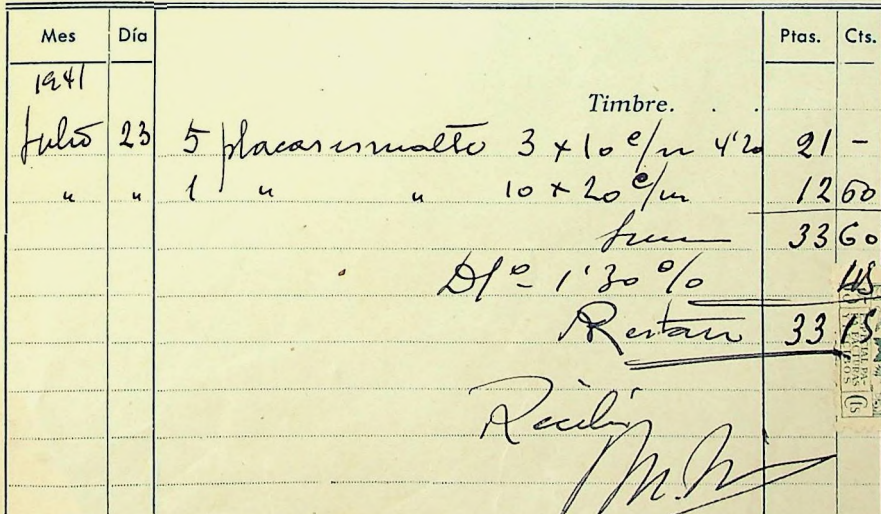 Mes Día Ptas. Cts.
1941
Timbre. . .
Julio 23 5 placas esmalte 3 x 10 c/m 4'20 21 -
" " 1 " " 10 x 20 c/m 12 60
Suma 33 60
Dto - 1'30 % 45
Restan 33 15
Recibí